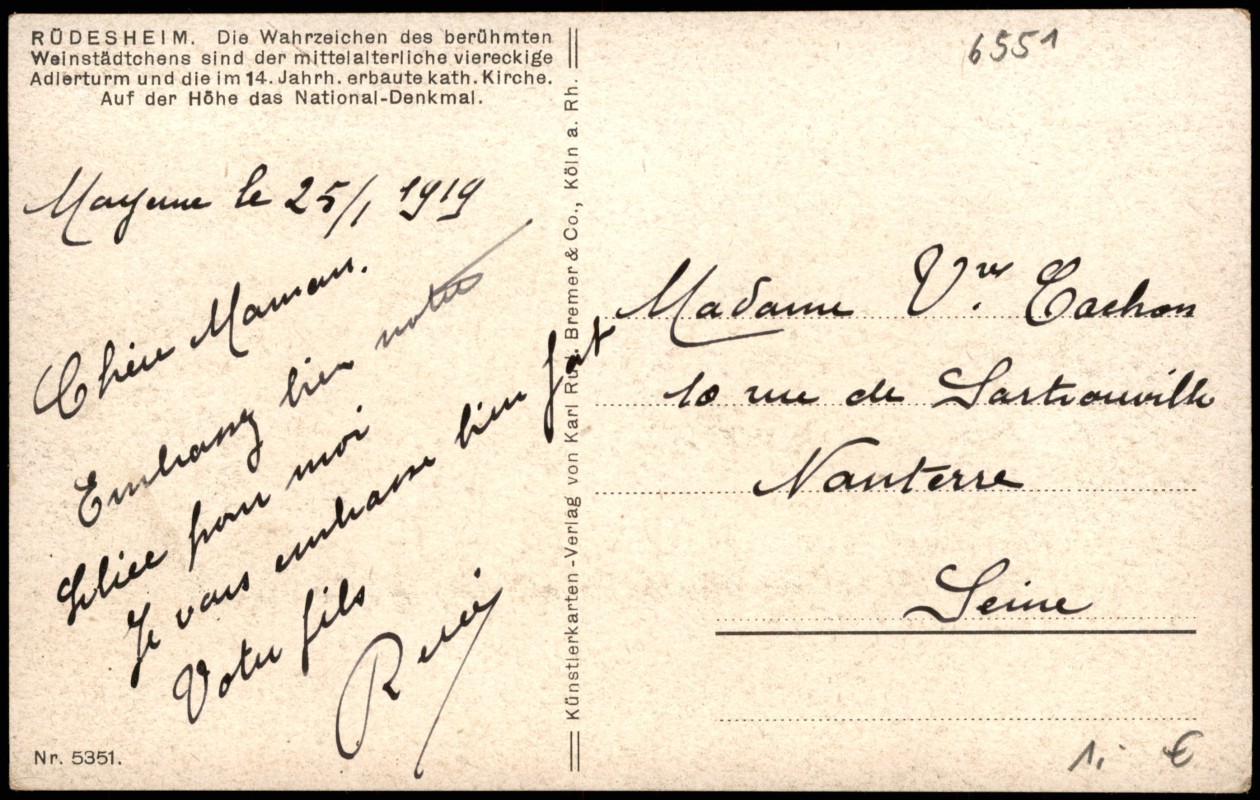 RÜDESHEIM. Die Wahrzeichen des berühmten
Weinstädtchens sind der mittelalterliche viereckige
Adlerturm und die im 14. Jahrh. erbaute kath. Kirche.
Auf der Höhe das National-Denkmal.
le 25/1 1919
Chère Maman.
Embrassez bien notre
pour moi
Je vous embrasse bien fort
Votre fils
René
Nr. 5351.
Künstlerkarten-Verlag von Karl Rud. Bremer & Co., Köln a. Rh.
6551
Madame Vve Cachon
10 rue de Sartrouville
Nanterre
Seine
1. €